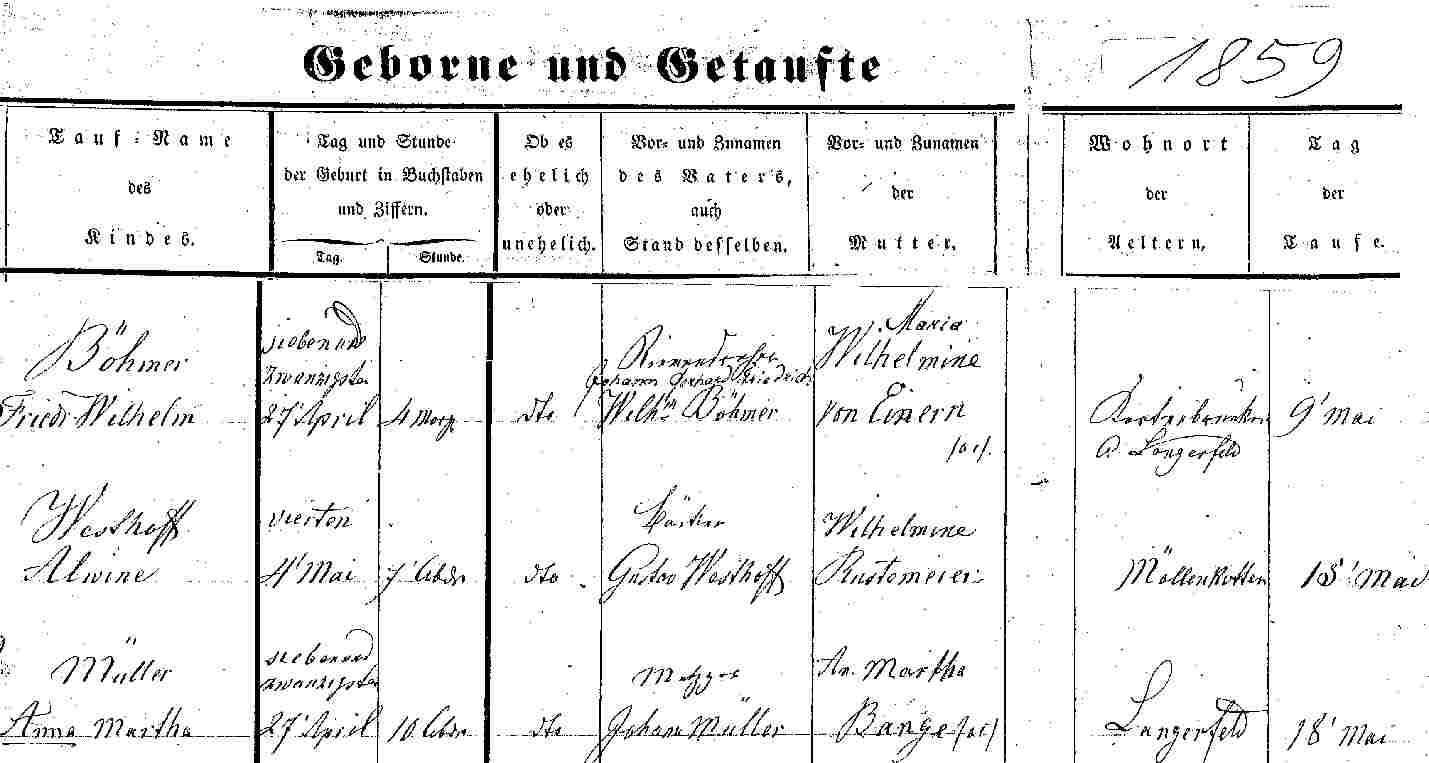 Geborne und Getaufte
1859
Tauf-Name
des
Kindes.
Tag und Stunde
der Geburt in Buchstaben
und Ziffern.
Tag.
Stunde.
Ob es
ehelich
oder
unehelich.
Vor- und Zunamen
des Vaters,
auch
Stand desselben.
Vor- und Zunamen
der
Mutter.
Wohnort
der
Aeltern.
Tag
der
Taufe.
Böhmer
Friedr Wilhelm
siebenund
zwanzigsten
27' April
4 Morg
dto
Johann Gerhard Friedrich
Wilhm Böhmer
Maria
Wilhelmine
von Einern
Langerfeld
9' Mai
Westhoff
Alwine
vierten
4' Mai
7' Abds
dto
Bäcker
Gustav Westhoff
Wilhelmine
Rustemeier
Möllenkotten
15' Mai
Müller
Anna Martha
siebenund
zwanzigsten
27' April
10 Abds
dto
Metzger
Johann Müller
An. Martha
Bange
Langerfeld
18' Mai